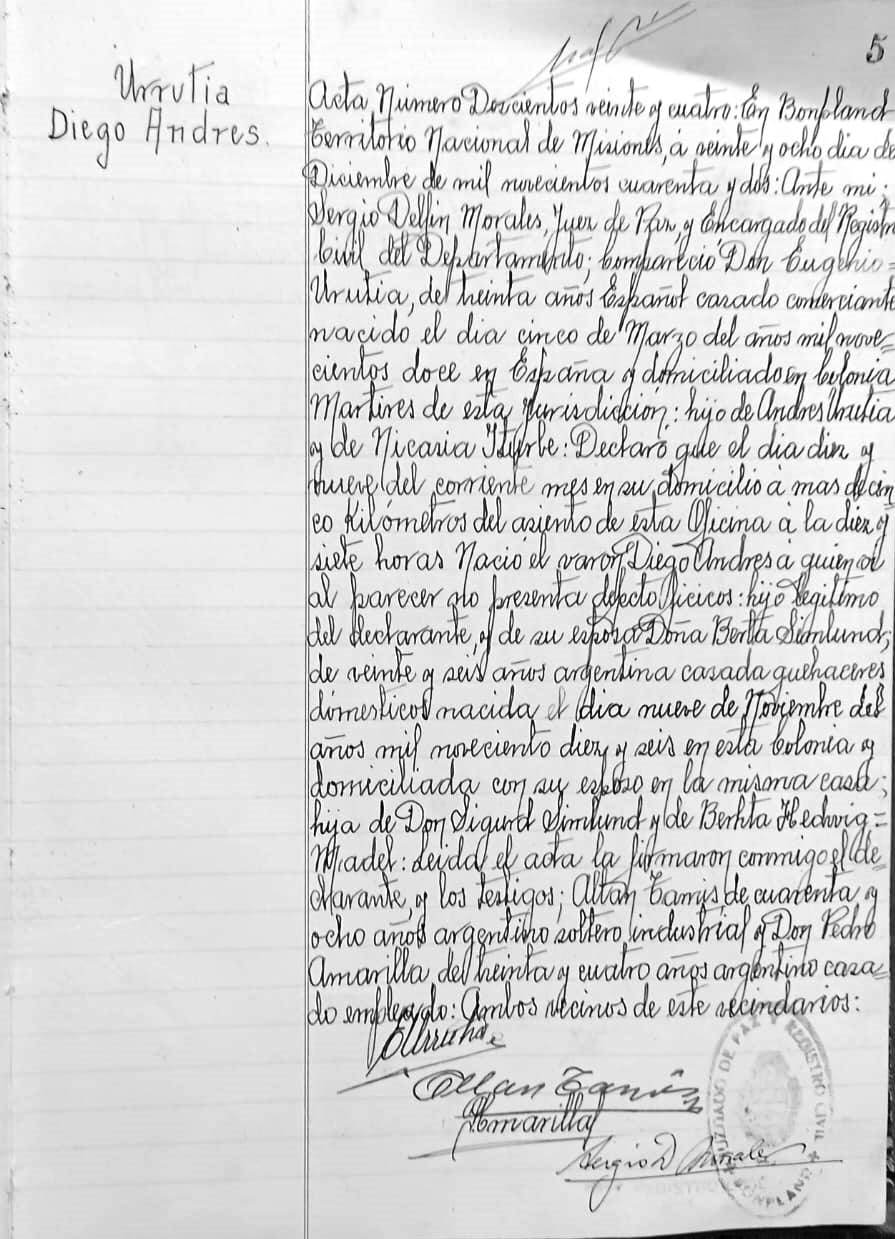 5
Urrutia
Diego Andres.
Acta Número Doscientos veinte y cuatro: En Bonpland
Territorio Nacional de Misiones, á veinte y ocho dia de
Diciembre de mil novecientos cuarenta y dos: Ante mi;
Sergio Delfin Morales, Juez de Paz, y Encargado del Registro
Civil del Departamento; Compareció Don Eugenio=
Urutia, de treinta años Español casado comerciante
nacido el dia cinco de Marzo del años mil nove=
cientos doce en España y domiciliado en Colonia
Martires de esta Jurisdiccion: hijo de Andres Urutia
y de Nicaria Iturbe: Declaró que el dia diez y
nueve del corriente mes en su domicilio á mas de cin
co Kilómetros del asiento de esta Oficina á la diez y
siete horas Nació el varon Diego Andres á quien vi
al parecer no presenta defecto ficicos: hijo legitimo
del declarante, y de su esposa Doña Berta Simlund;
de veinte y seis años argentina casada quehaceres
domesticos nacida el dia nueve de Noviembre del
años mil noveciento diez y seis en esta Colonia y
domiciliada con su esposo en la misma casa;
hija de Don Sigurd Simlund y de Berhta Hedwig=
Miadel: Leida el acta la firmaron conmigo el de=
clarante, y los testigos; Altan Tamis de cuarenta y
ocho años argentino soltero industrial y Don Pedro
Amarilla de treinta y cuatro años argentino casa=
do empleado: Ambos vecinos de este vecindarios:
EUrrutia
Allan Tamis
PAmarilla
Sergio D Morales
JUZGADO DE PAZ Y REGISTRO CIVIL
BONPLAND